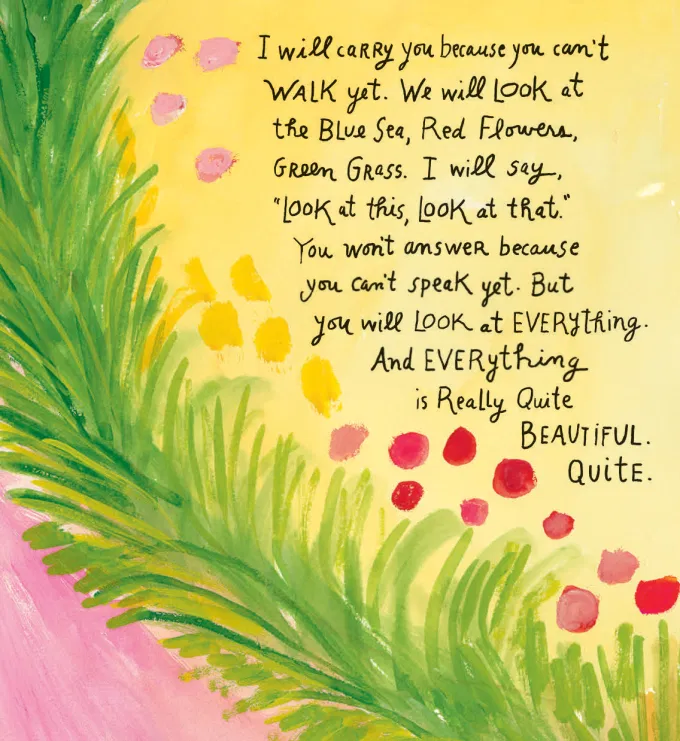 I will CARRY you because you can't
WALK yet. We will LOOK at
the BLue Sea, Red Flowers,
GReen GRASS. I will say,
"LOOK at this, LOOK at that."
You won't answeR because
you can't speak yet. But
you will LOOK at EVERything.
And EVERything
is Really Quite
BEAUTIFUL.
QUITE.